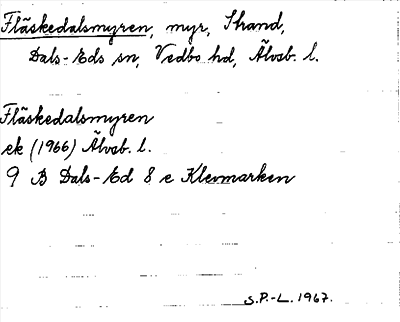 Fläskedalsmyren, myr, Strand,
Dals-Eds sn, Vedbo hd, Älvsb. l.
Fläskedalsmyren
ek (1966) Älvsb. l.
9 B Dals-Ed 8 e Klevmarken
S.P.-L. 1967.